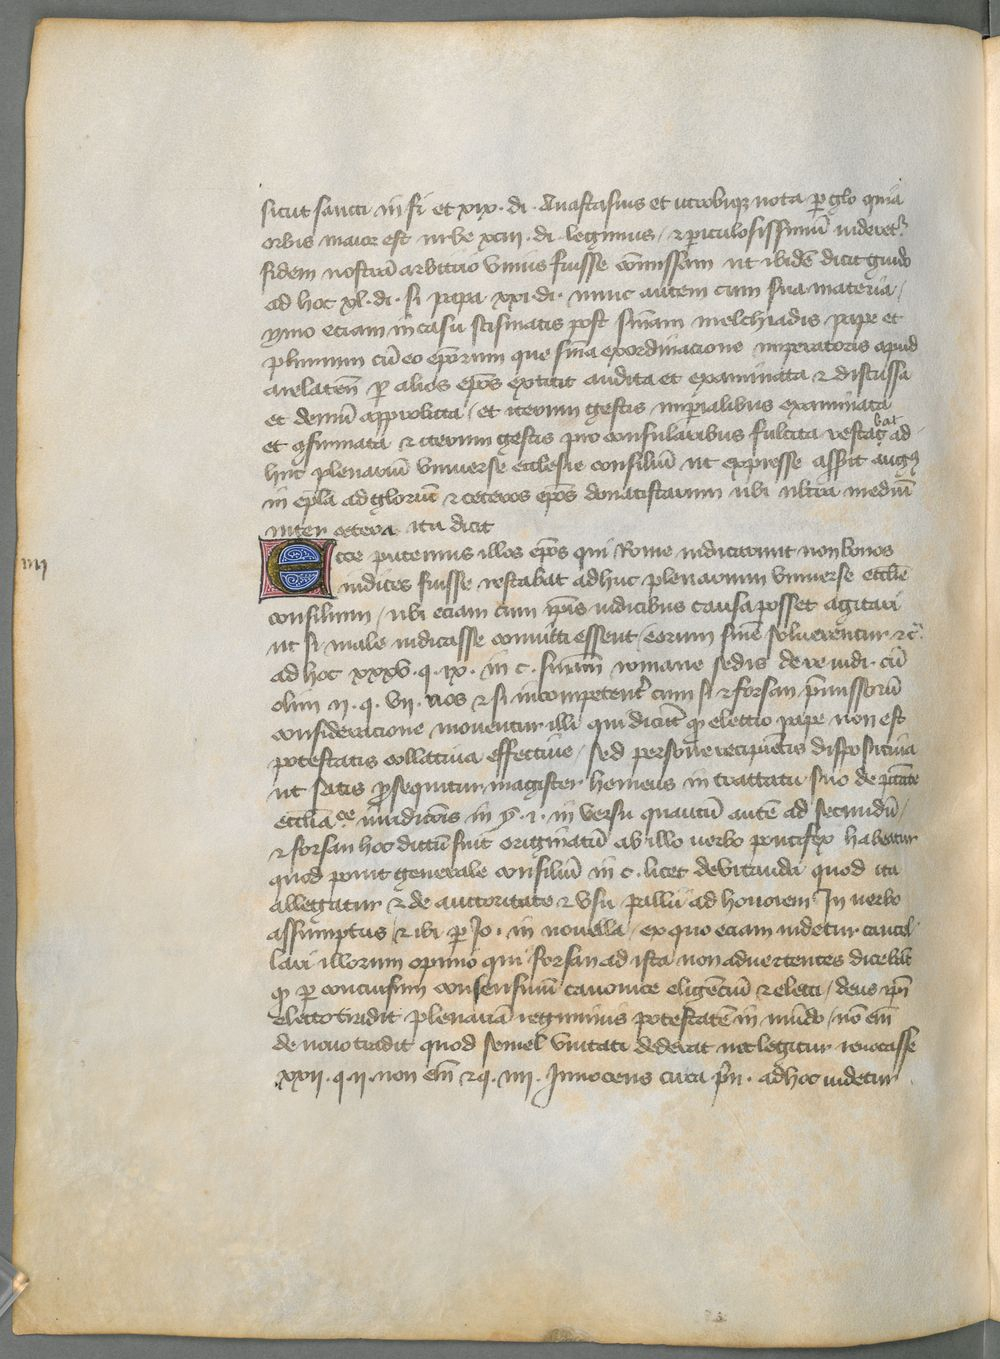 sicut sancti in fi et xix · di · Anastasius et utrobiqz nota p glo quia
orbis maior est urbe xciii · di · legimus / ⁊ piculosissimū uideret
fidem nostrā arbitrio vnius fuisse cōmissam ut ibidē dicit guido
ad hoc xl · di · si papa xxi · di · nunc autem cum sua materia /
ymo eciam in casu scismatis post sniam melchiadis pape et
plurimum cū eo eporum que snia ex ordinacione imperatoris apud
arelatēn p alios epos extitit audita et examinata ⁊ discussa
et demū approbata / et iterum gestis imperialibus examinata
et confirmata ⁊ iterum gestis proconsularibus fulcita restabat ad
huc plenariū vniuerse ecclesie consiliū ut expresse asserit augꝰ
in epla ad gloriū ⁊ ceteros epos donatistarum ubi ultra mediū
inter cetera ita dicit
iiii
Ecce putemus illos epos qui Rome iudicarunt non bonos
iudices fuisse restabat adhuc plenarium vniuerse eccłie
consilium / ubi eciam cum ipis iudicibus causa posset agitari
ut si male iudicasse conuicti essent / eorum snie soluerentur ⁊c
ad hoc xxxv · q · ix · in c · sniam romane sedis de re iudi · cū
olim ii · q · vii · nos ⁊ si incompetent cum si ⁊ forsan pmissorū
consideracione mouentur illi qui dicūt ꝙ electio pape non est
potestatis collatiua effectiue / sed persone recipientis dispositiua
ut satis psequitur magister henricus in tractatu suo de ptate
ecclīa ce iurisdictōis in § · i · in versu quantū autē ad secundū /
⁊ forsan hoc dictū fuit originatū ab illo uerbo pontifex habeatur
quod ponit generale consiliū in c · licet de vitanda quod ita
allegatur ⁊ de auctoritate ⁊ vsu pallii ad honorem In uerbo
assumptus / ⁊ ibi p Jo · in nouella / ex quo eciam uidetur cancel
lari illorum opinio qui forsan ad ista non aduertentes dicebāt
ꝙ p concursum consensuū canonice eligenciū ⁊ electi / deus ipī
electo tradit plenariā regiminis potestatē in mūdo / nō eni
de nouo tradit quod semel vnitati dederat nec legitur reuocasse
xxii · q · ii · non eni ⁊ q · iiii · Innocens circa prin · ad hoc uidetur